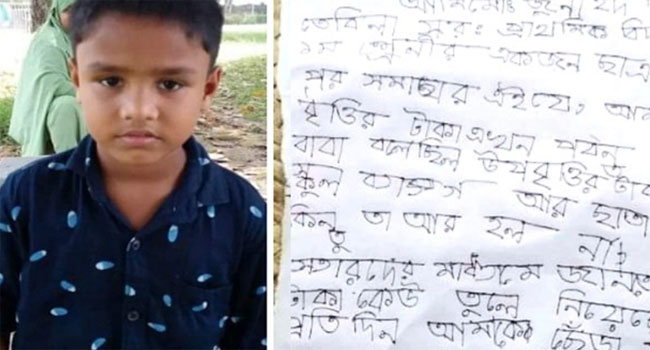 আমি মোঃ
তেবিলা সরঃ প্রাথমিক বি
১ম শ্রেনীর একজন ছাত্র
পর সমাচার এইযে, আমা
বৃত্তির টাকা এখন পর্যন্ত
বাবা বলেছিল উপবৃত্তির টাকা
স্কুল ব্যাগ আর ছাতা
কিন্তু তা আর হল না;
স্যারদের মাধ্যমে জানতে
টাকা কেউ তুলে নিয়েছে
প্রতি দিন আমাকে ছেঁড়া